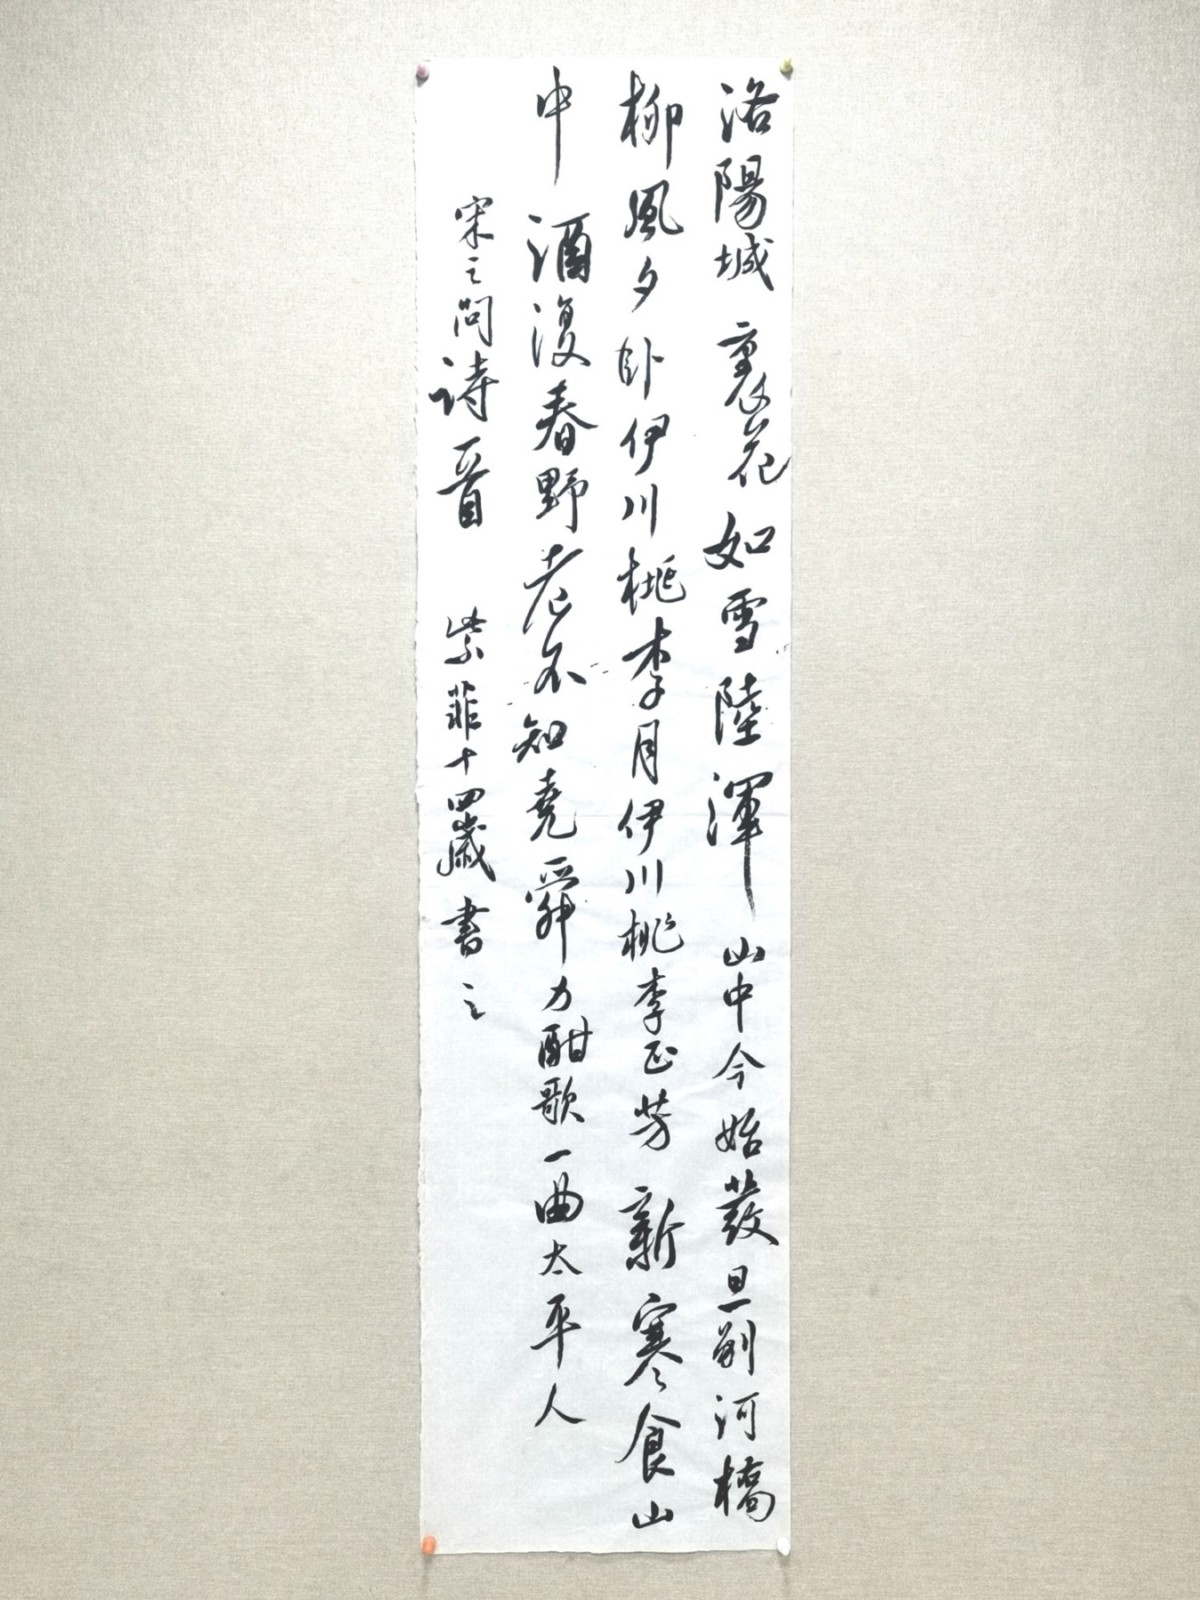 洛陽城裏花如雪陸渾山中今始發旦別河橋
柳風夕卧伊川桃李月伊川桃李正芳新寒食山
中酒復春野老不知堯舜力酣歌一曲太平人
宋之問詩一首 紫菲十四歲書之